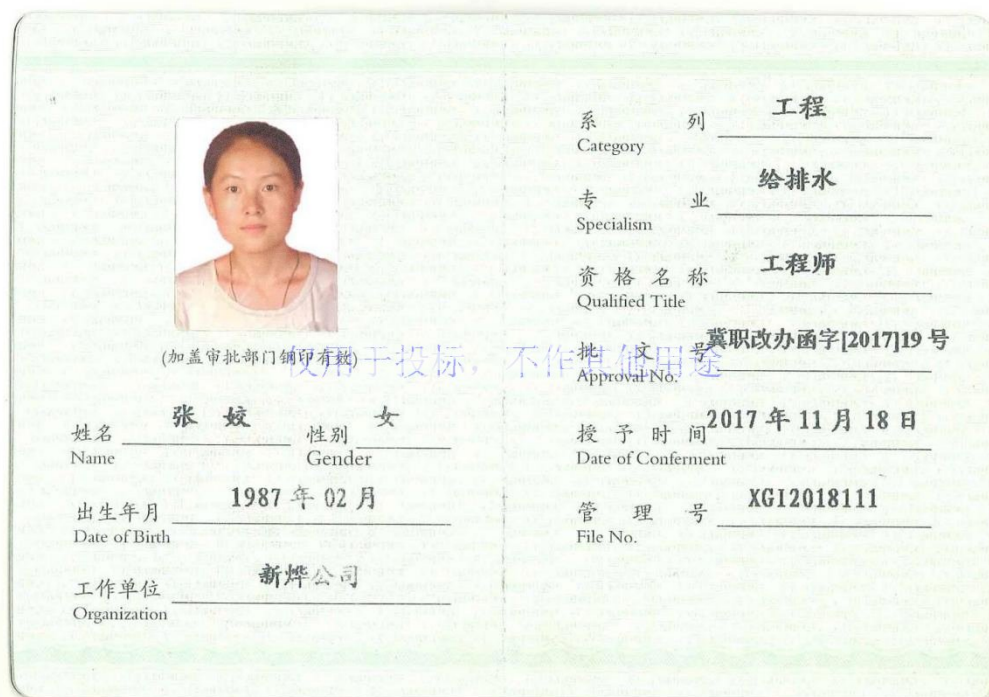 (加盖审批部门钢印有效)
仅用于投标，不作其他用途
姓名 张 姣 性别 女
Name Gender
出生年月 1987 年 02 月
Date of Birth
工作单位 新烨公司
Organization
系 列 工程
Category
专 业 给排水
Specialism
资 格 名 称 工程师
Qualified Title
批 文 号 冀职改办函字[2017]19 号
Approval No.
授 予 时 间 2017 年 11 月 18 日
Date of Conferment
管 理 号 XGI2018111
File No.